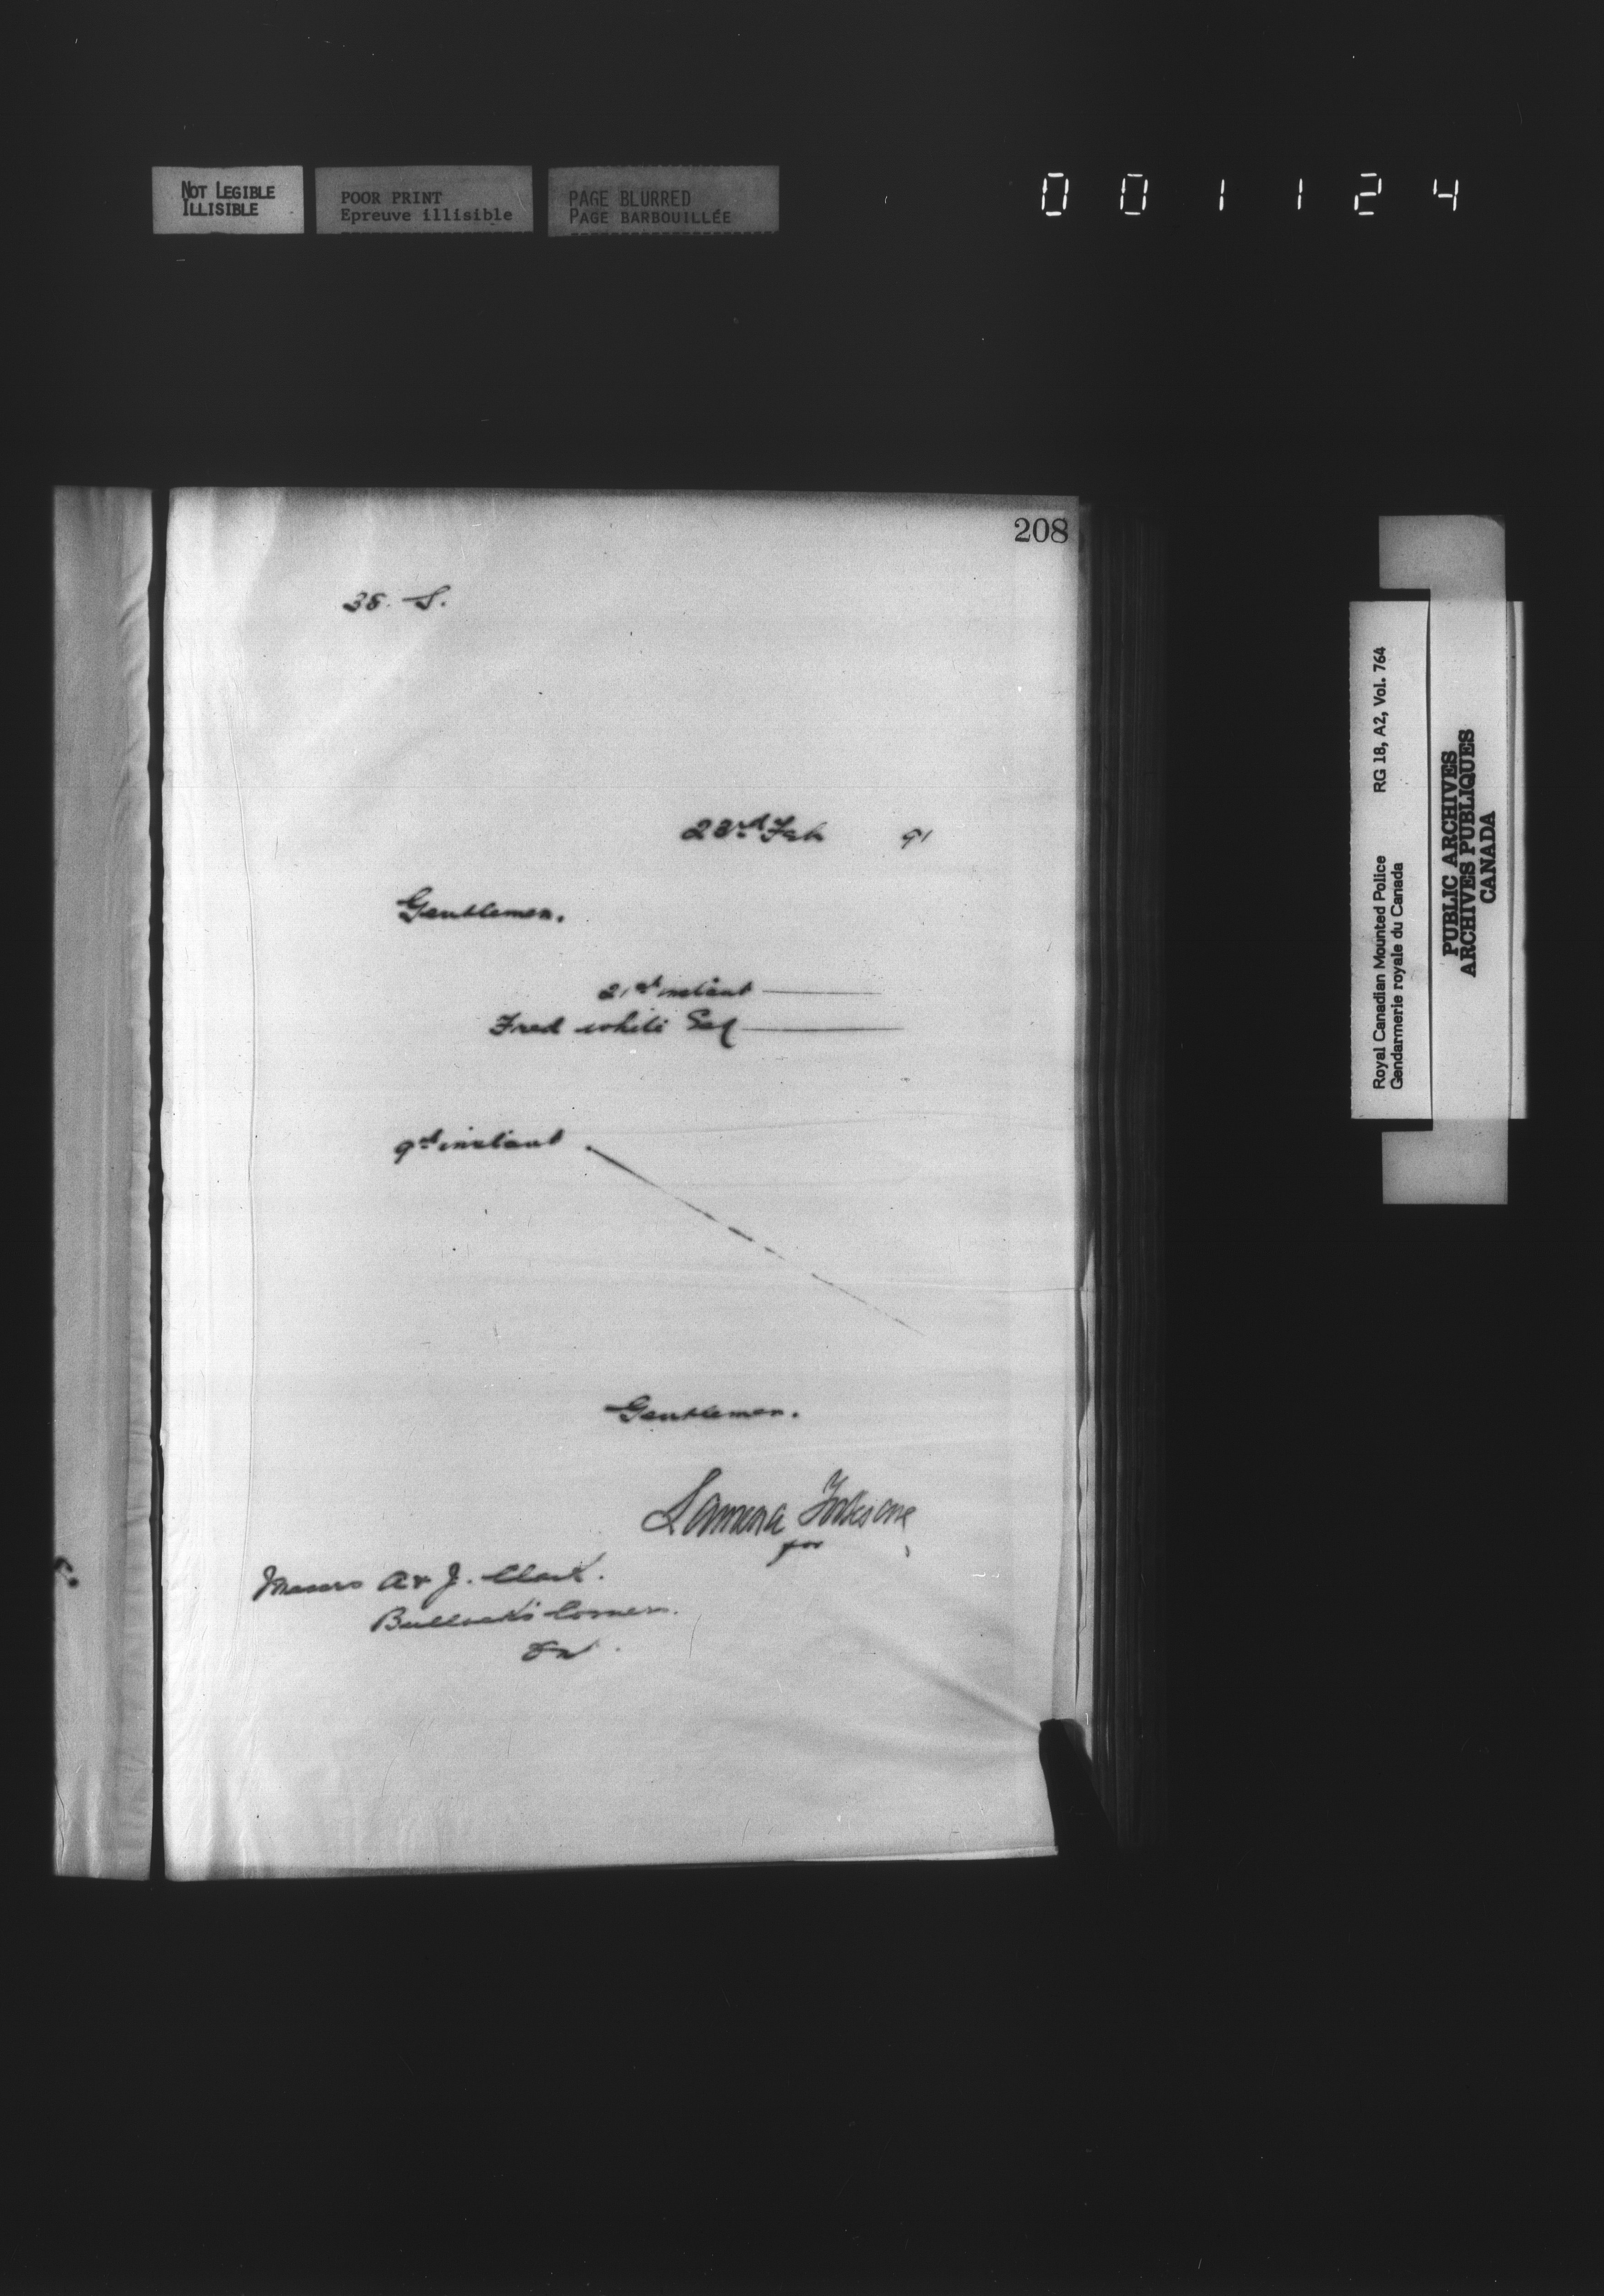 NOT LEGIBLE
ILLISIBLE
POOR PRINT
Epreuve illisible
PAGE BLURRED
PAGE BARBOUILLÉE
001124
208
38. S.
23rd Feb 91
Gentlemen.
21st instant
Fred White Esq
9th instant
Gentlemen.
for
Messrs A & J. Clark.
Bullock's Corners.
Ont.
Royal Canadian Mounted Police RG 18, A2, Vol. 764
Gendarmerie royale du Canada
PUBLIC ARCHIVES
ARCHIVES PUBLIQUES
CANADA